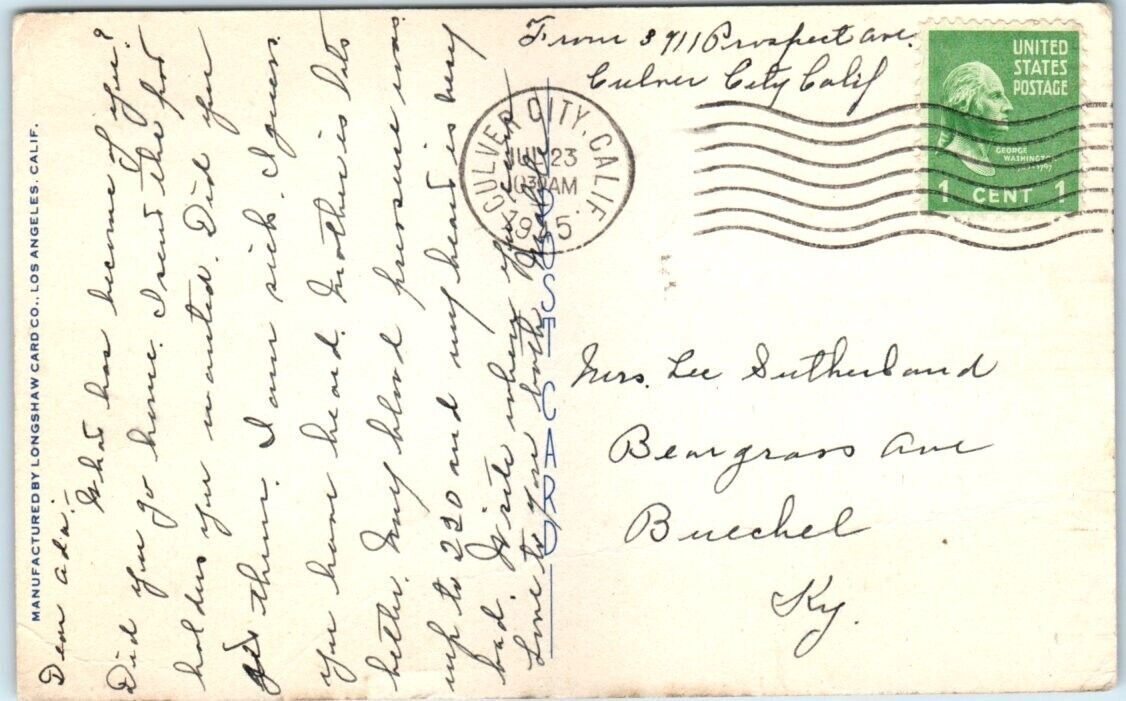 MANUFACTURED BY LONGSHAW CARD CO., LOS ANGELES, CALIF.
Dear Ada:
What has become of you?
Did you go home. I send the pot
holders you wanted. Did you
get them. I am sick. I guess
you have heard. Mother is lots
better. My blood pressure was
up to 220 and my head is very
bad. Write when you can
Love to you both
POST CARD
From 3911 Prospect Ave.
Culver City Calif
CULVER CITY, CALIF.
JUL 23
10 30 AM
1945
UNITED
STATES
POSTAGE
GEORGE
WASHINGTON
1 CENT 1
Mrs. Lee Sutherland
Beargrass Ave
Buechel
Ky.